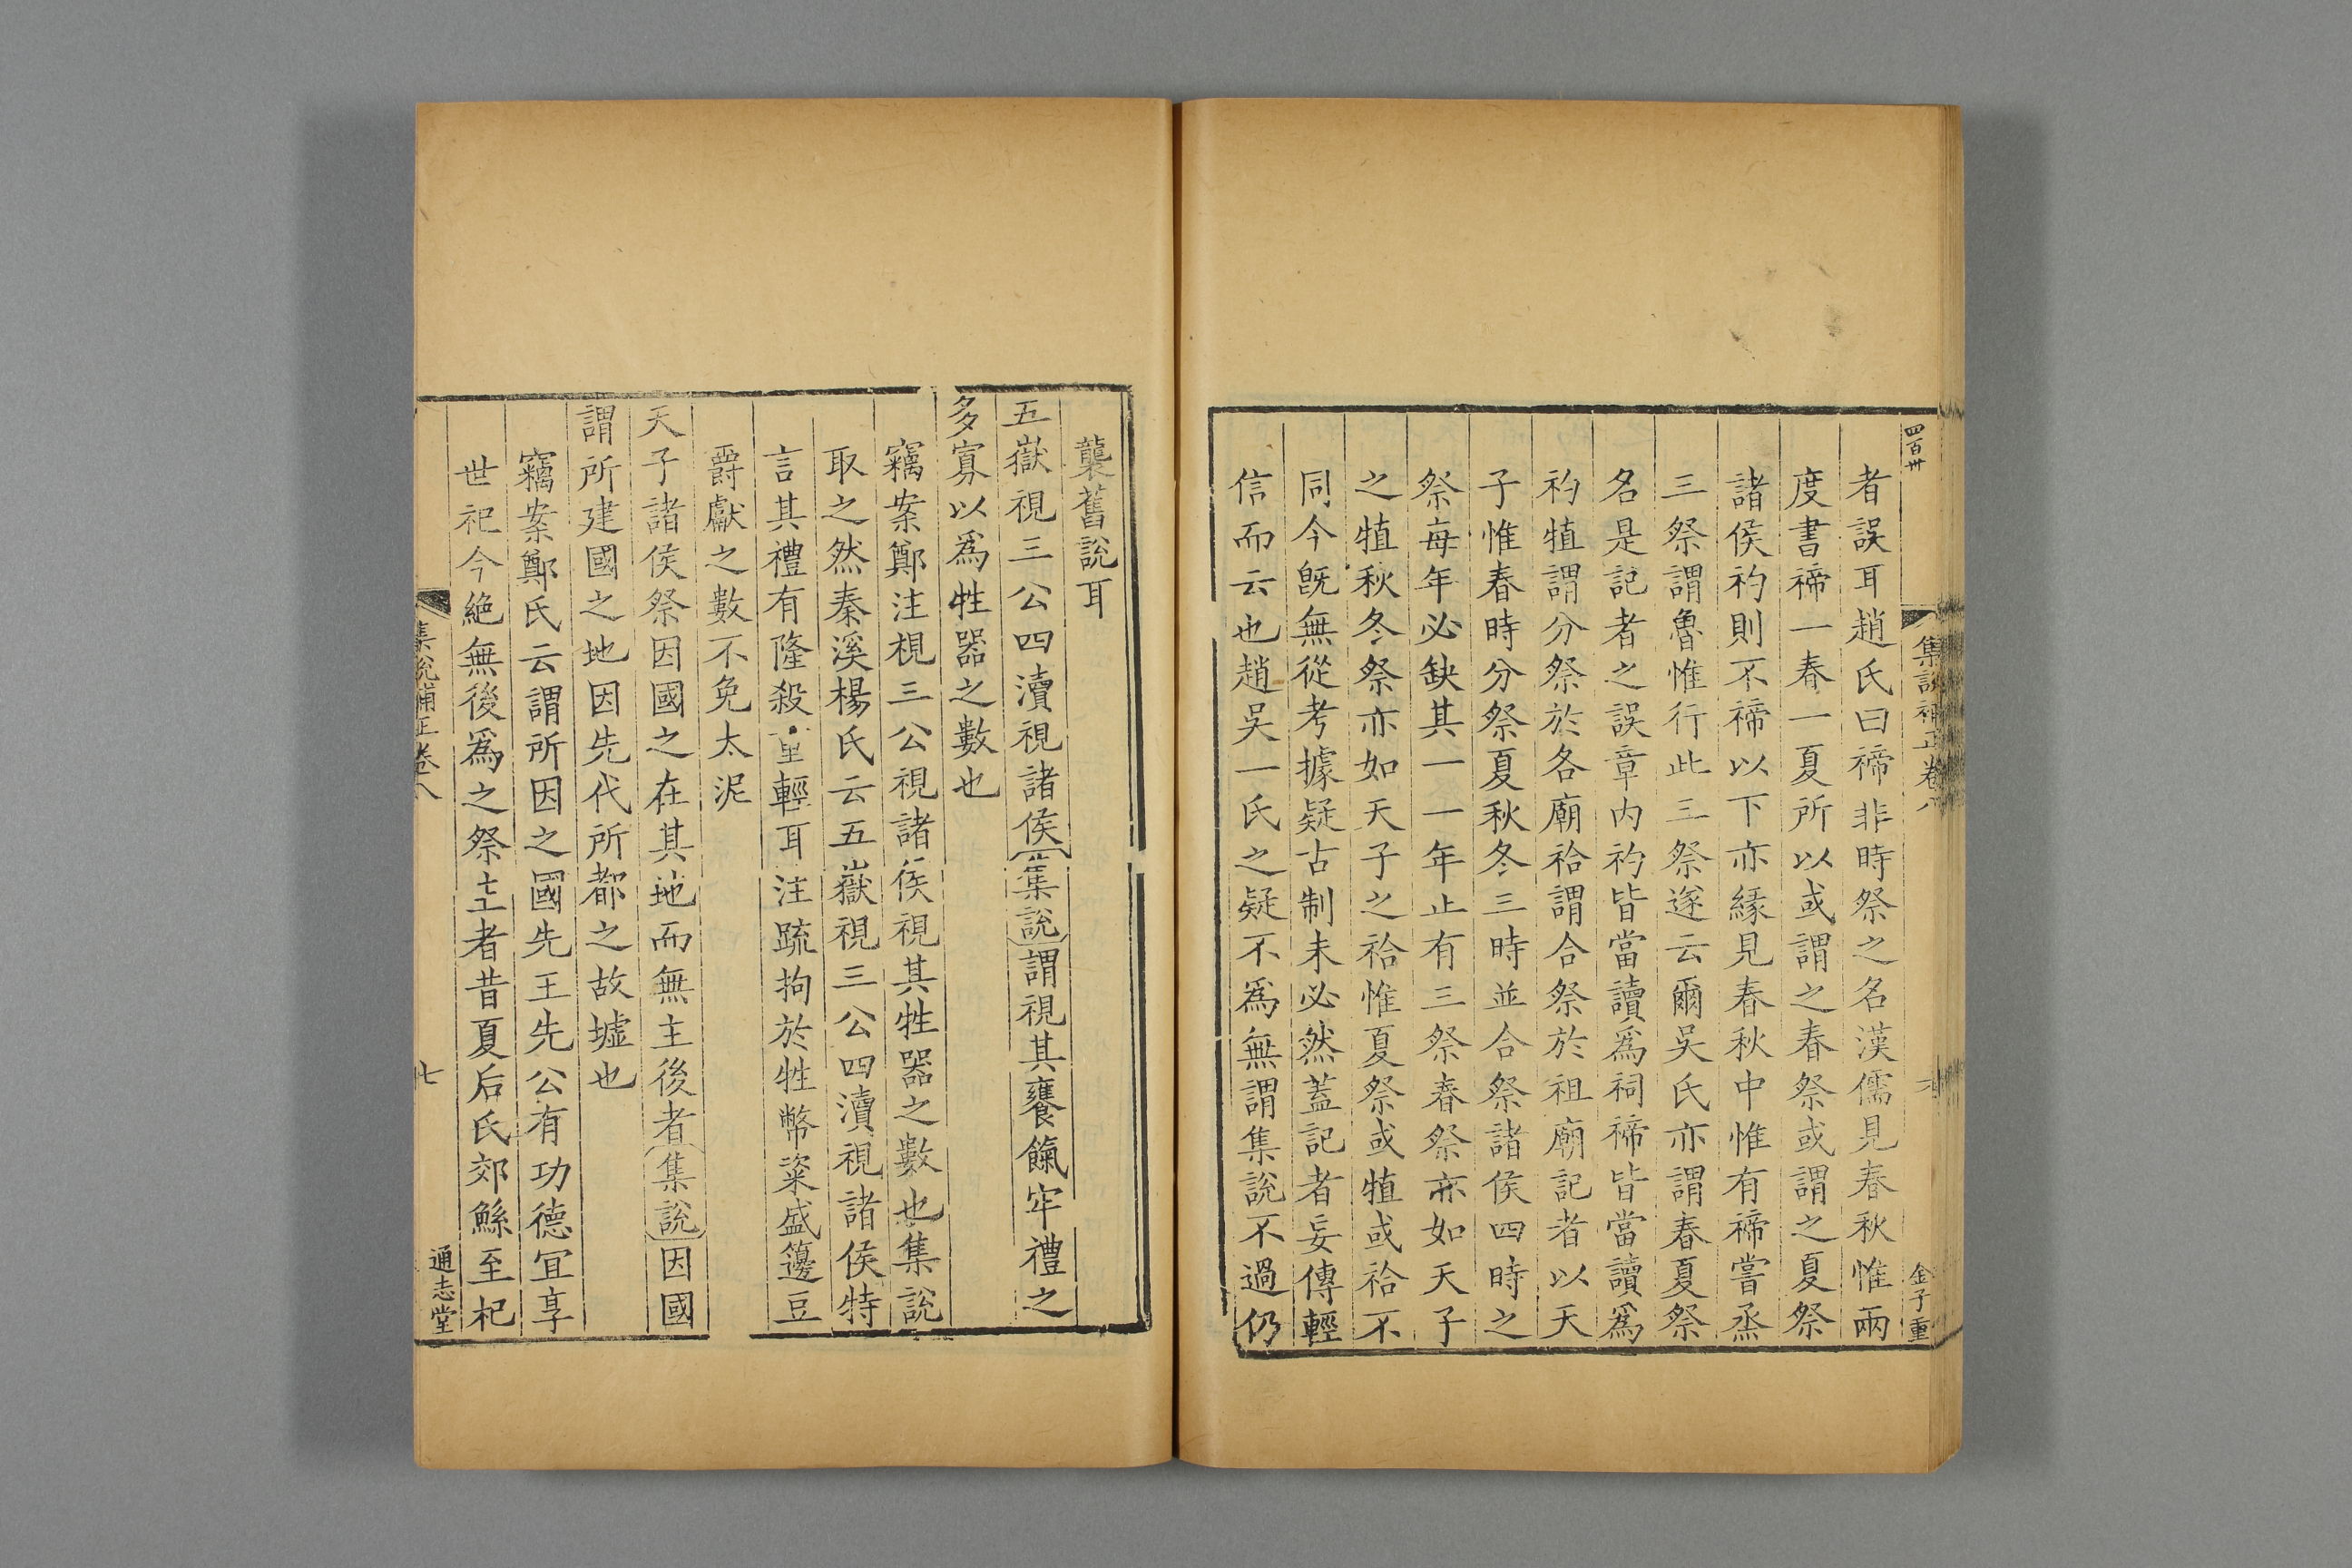 四百卅
集說補正卷八
金子重
者誤耳趙氏曰禘非時祭之名漢儒見春秋惟兩
度書禘一春一夏所以或謂之春祭或謂之夏祭
諸侯礿則不禘以下亦緣見春秋中惟有禘嘗烝
三祭謂魯惟行此三祭遂云爾吳氏亦謂春夏祭
名是記者之誤章内礿皆當讀爲祠禘皆當讀爲
礿犆謂分祭於各廟祫謂合祭於祖廟記者以天
子惟春時分祭夏秋冬三時並合祭諸侯四時之
祭每年必缺其一一年止有三祭春祭亦如天子
之犆秋冬祭亦如天子之祫惟夏祭或犆或祫不
同今旣無從考據疑古制未必然蓋記者妄傳輕
信而云也趙吳一氏之疑不爲無謂集說不過仍
襲舊說耳
五嶽視三公四瀆視諸侯集說謂視其饔餼牢禮之
多寡以爲牲器之數也
竊案鄭注視三公視諸侯視其牲器之數也集說
取之然秦溪楊氏云五嶽視三公四瀆視諸侯特
言其禮有隆殺輕耳注疏拘於牲幣粢盛籩豆
爵獻之數不免太泥
天子諸侯祭因國之在其地而無主後者集說因國
謂所建國之地因先代所都之故墟也
竊案鄭氏云謂所因之國先王先公有功德宜享
世祀今絕無後爲之祭主者昔夏后氏郊鯀至杞
集說補正卷八
七
通志堂